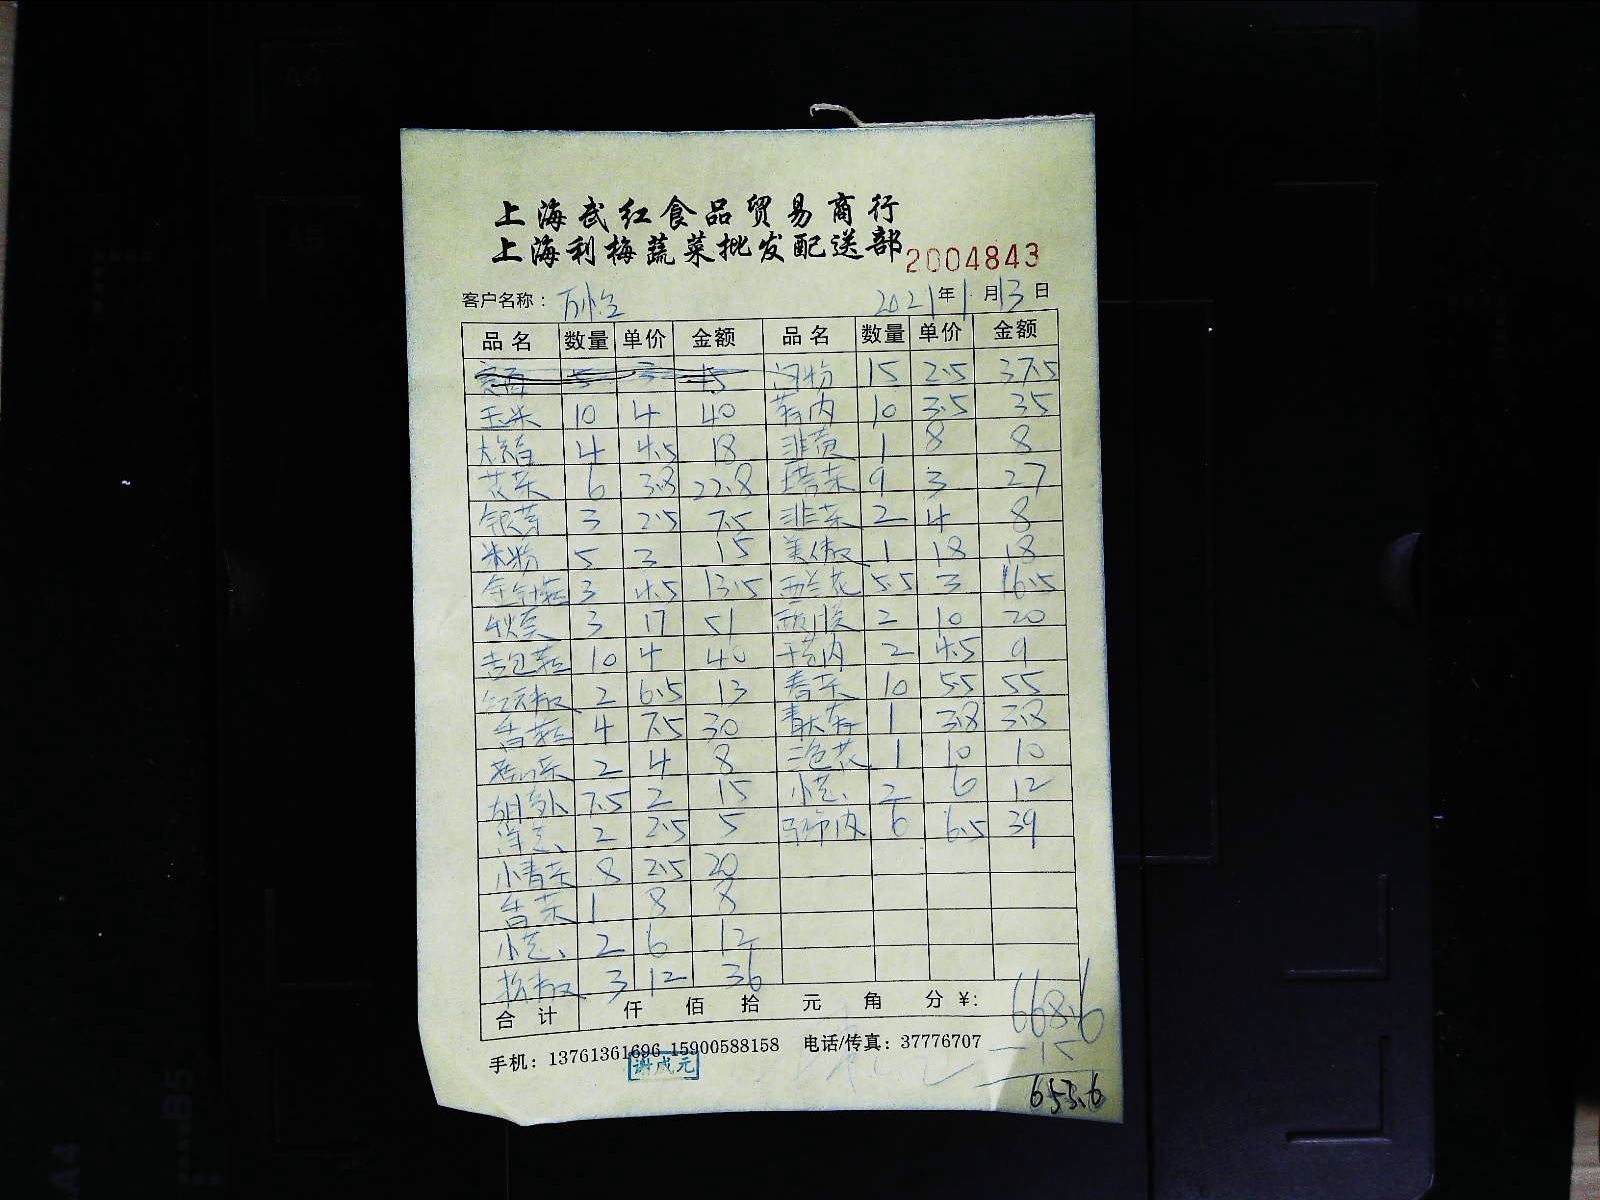 上海武红食品贸易商行
上海利梅蔬菜批发配送部 2004843
客户名称： 2021年1月13日
品名 数量 单价 金额 品名 数量 单价 金额
5 3 15 河粉 15 2.5 37.5
玉米 10 4 40 10 3.5 35
4 4.5 18 韭黄 1 8 8
花菜 6 3.8 22.8 塔菜 9 3 27
银芽 3 2.5 7.5 韭菜 2 4 8
米粉 5 3 15 美椒 1 18 18
金针菇 3 4.5 13.5 西兰花 5.5 3 16.5
3 17 51 2 10 20
杏包菇 10 4 40 2 4.5 9
红天椒 2 6.5 13 10 5.5 55
香菇 4 7.5 30 1 3.8 3.8
2 4 8 1 10 10
7.5 2 15 小 2 6 12
洋 2 2.5 5 6 6.5 39
小青菜 8 2.5 20
香菜 1 8 8
小 2 6 12
3 12 36
合计 仟 佰 拾 元 角 分 ¥: 668.6
手机：13761361696 15900588158 电话/传真：37776707
谢成元
-15
653.6